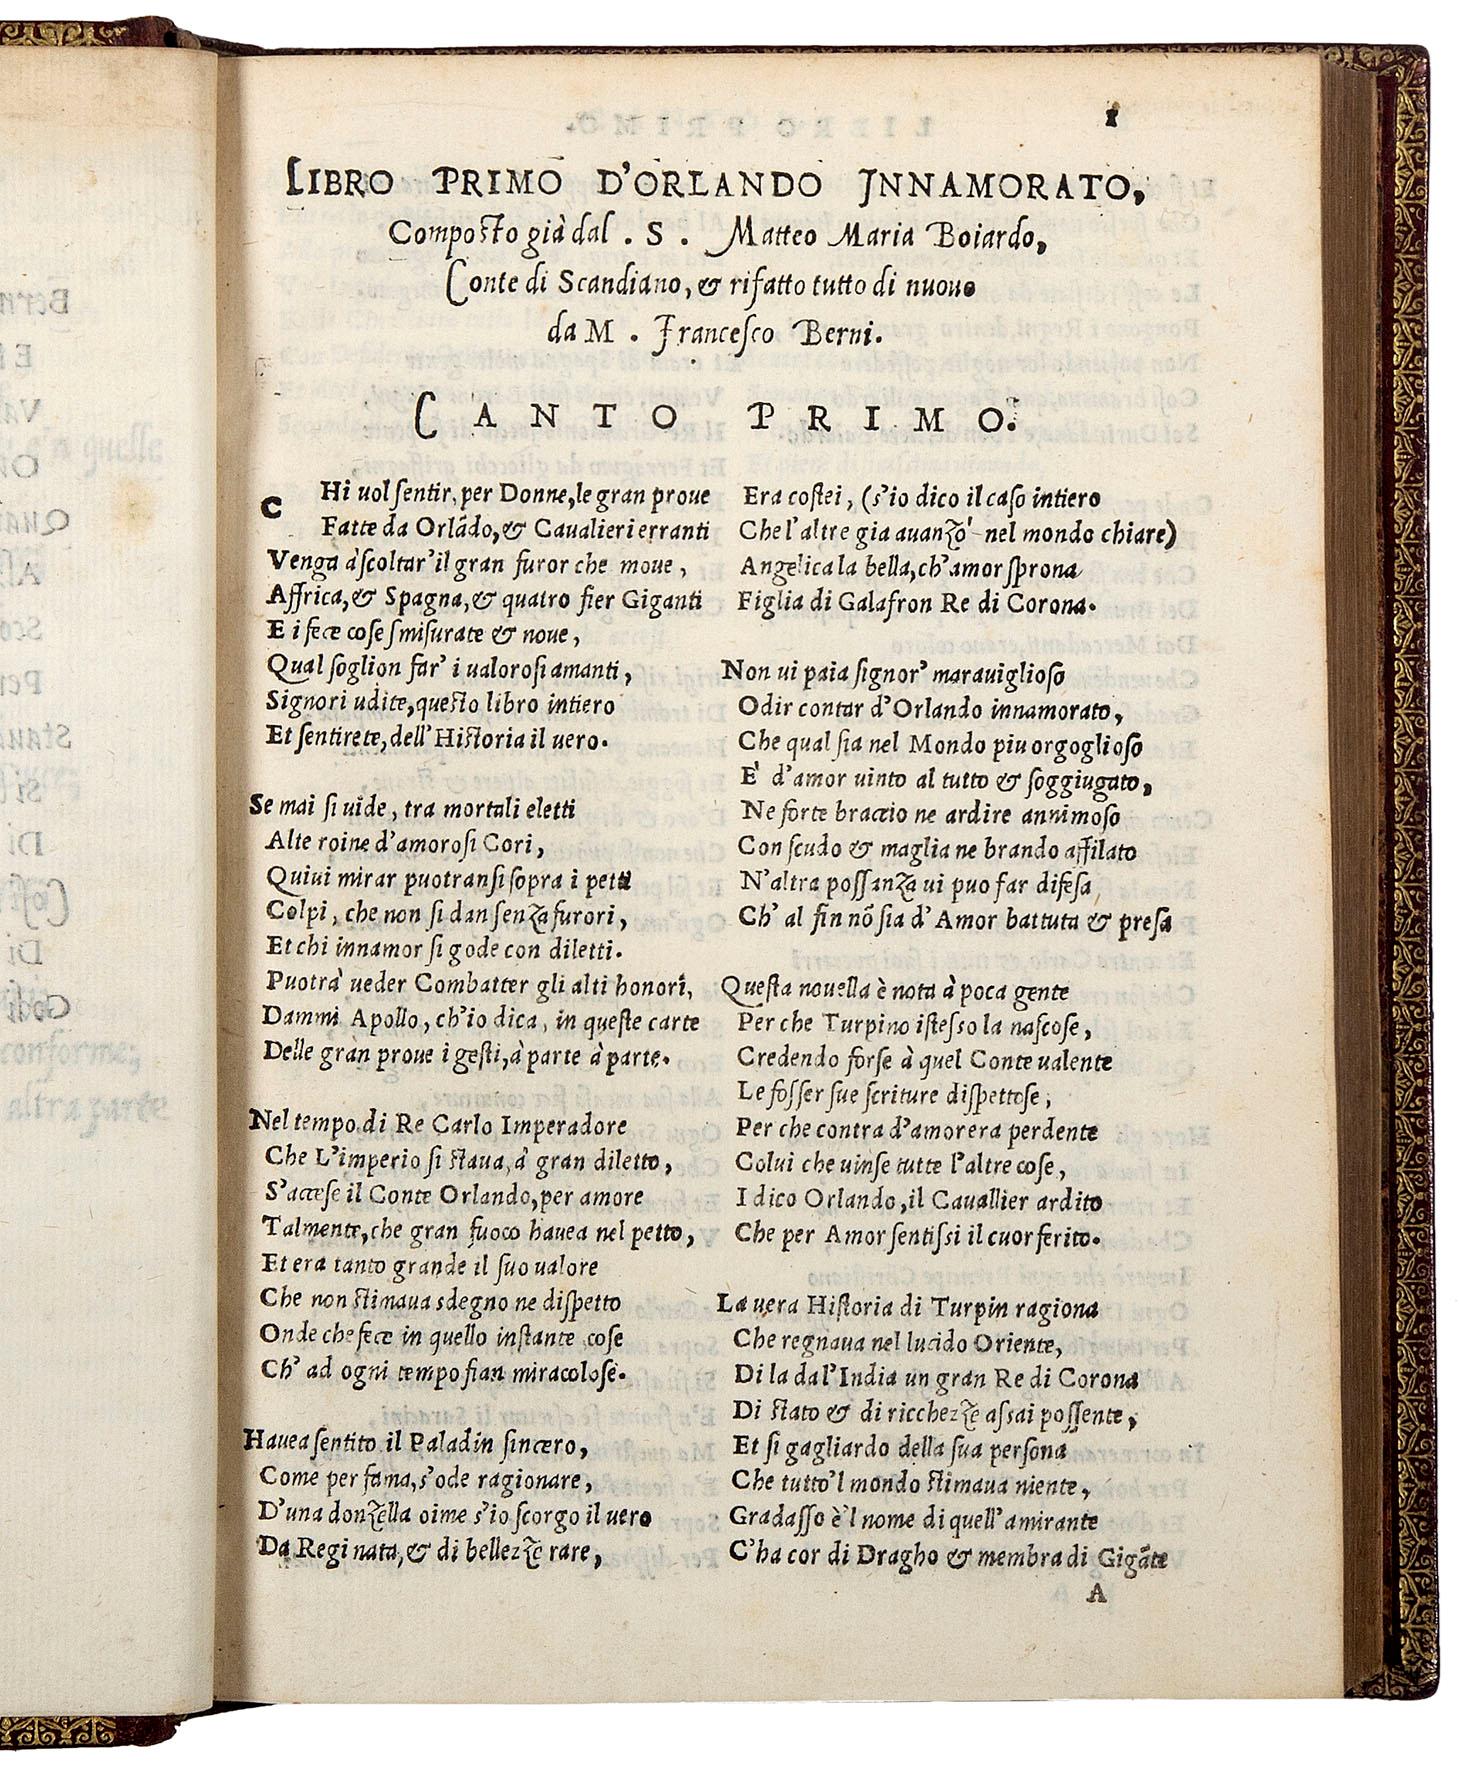 1
LIBRO PRIMO D'ORLANDO JNNAMORATO,
Composto già dal . S . Matteo Maria Boiardo,
Conte di Scandiano, & rifatto tutto di nuouo
da M . Francesco Berni.
CANTO PRIMO.
CHi uol sentir, per Donne, le gran proue
Fatte da Orlãdo, & Caualieri erranti
Venga à scoltar' il gran furor che moue,
Affrica, & Spagna, & quatro fier Giganti
E i fece cose smisurate & noue,
Qual soglion far' i ualorosi amanti,
Signori udite, questo libro intiero
Et sentirete, dell'Historia il uero.
Se mai si uide, tra mortali eletti
Alte roine d'amorosi Cori,
Quiui mirar puotransi sopra i petti
Colpi, che non si dan senza furori,
Et chi innamor si gode con diletti.
Puotrà ueder Combatter gli alti honori,
Dammi Apollo, ch'io dica, in queste carte
Delle gran proue i gesti, à parte à parte.
Nel tempo di Re Carlo Imperadore
Che L'imperio si staua, à gran diletto,
S'accese il Conte Orlando, per amore
Talmente, che gran fuoco hauea nel petto,
Et era tanto grande il suo ualore
Che non stimaua sdegno ne dispetto
Onde che fece in quello instante cose
Ch' ad ogni tempo fian miracolose.
Hauea sentito il Paladin sincero,
Come per fama, s'ode ragionare,
D'una donzella oime s'io scorgo il uero
Da Regi nata, & di bellezze rare,
Era costei, (s'io dico il caso intiero
Che l'altre gia auanzò nel mondo chiare)
Angelica la bella, ch'amor sprona
Figlia di Galafron Re di Corona.
Non ui paia signor' marauiglioso
Odir contar d'Orlando innamorato,
Che qual sia nel Mondo piu orgoglioso
E' d'amor uinto al tutto & soggiugato,
Ne forte braccio ne ardire annimoso
Con scudo & maglia ne brando affilato
N'altra possanza ui puo far difesa
Ch' al fin nõ sia d' Amor battuta & presa
Questa nouella è nota à poca gente
Per che Turpino istesso la nascose,
Credendo forse à quel Conte ualente
Le fosser sue scriture dispettose,
Per che contra d'amor era perdente
Colui che uinse tutte l'altre cose,
I dico Orlando, il Cauallier ardito
Che per Amor sentissi il cuor ferito.
La uera Historia di Turpin ragiona
Che regnaua nel lucido Oriente,
Di la dal'India un gran Re di Corona
Di stato & di ricchezze assai possente,
Et si gagliardo della sua persona
Che tutto'l mondo stimaua niente,
Gradasso è'l nome di quell'amirante
C'ha cor di Dragho & membra di Gigãte
A